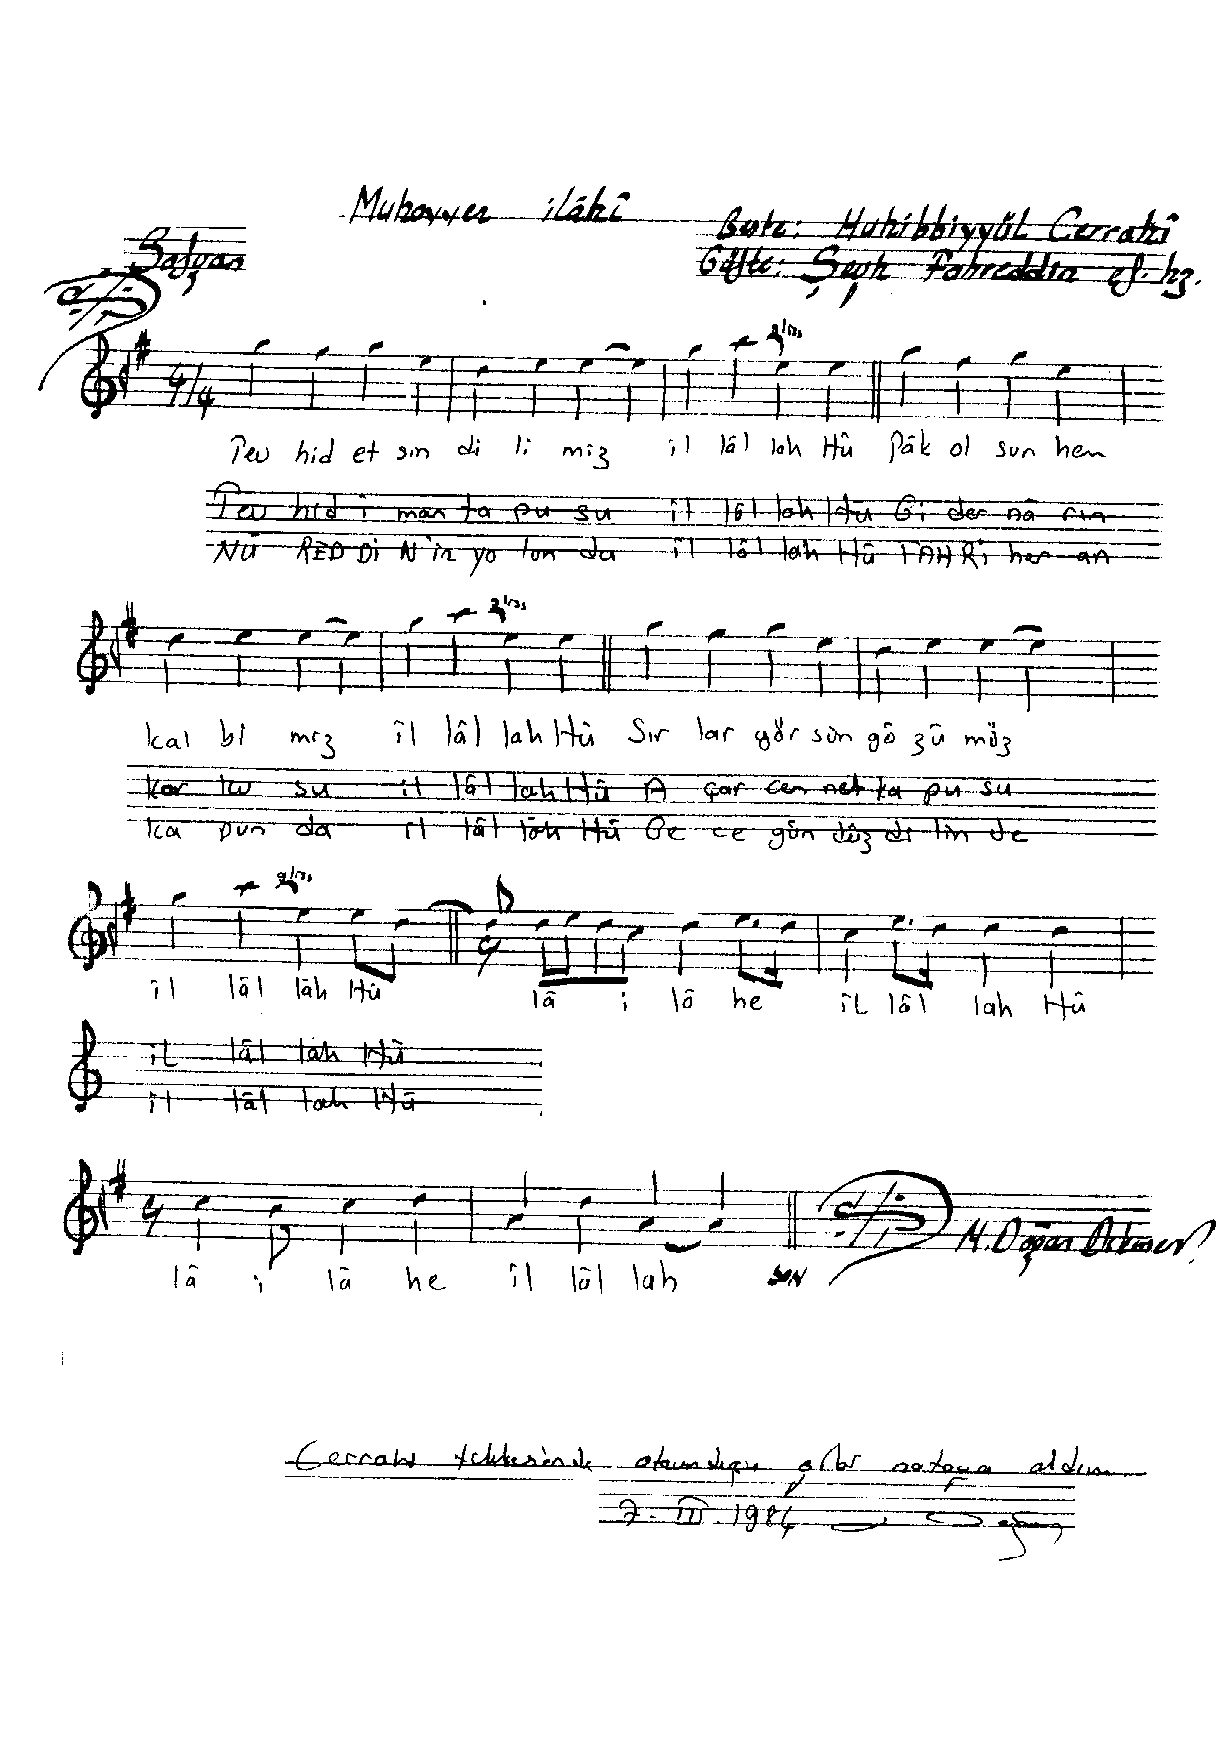 Muhayyer ilâhî
Beste: Muhibbiyyül Cerrahî
Sofyan
Güfte: Şeyh Fahreddin ef. hz.
4/4
Tev hid et sin di li miz il lâl lah Hû Pâk ol sun hem
Tev hid i man ta pu su il lâl lah Hû Gi der nâ rın
NÛ RED Dİ N'in yo lun da il lâl lah Hû FAHRİ her an
kal bi miz îl lâl lah Hû Sır lar gör sün gö zü müz
kor ku su il lâl lah Hû A çar cen net ka pu su
ka pun da il lâl lâh Hû Ge ce gün düz di lin de
îl lâl lâh Hû lâ i lâ he îl lâl lah Hû
il lâl lah Hû
îl lâl lah Hû
M. Doğan Dikmen
lâ i lâ he îl lâl lah SON
Cerrahi tekkesinde okunduğu gibi notaya aldım
7. III. 1984